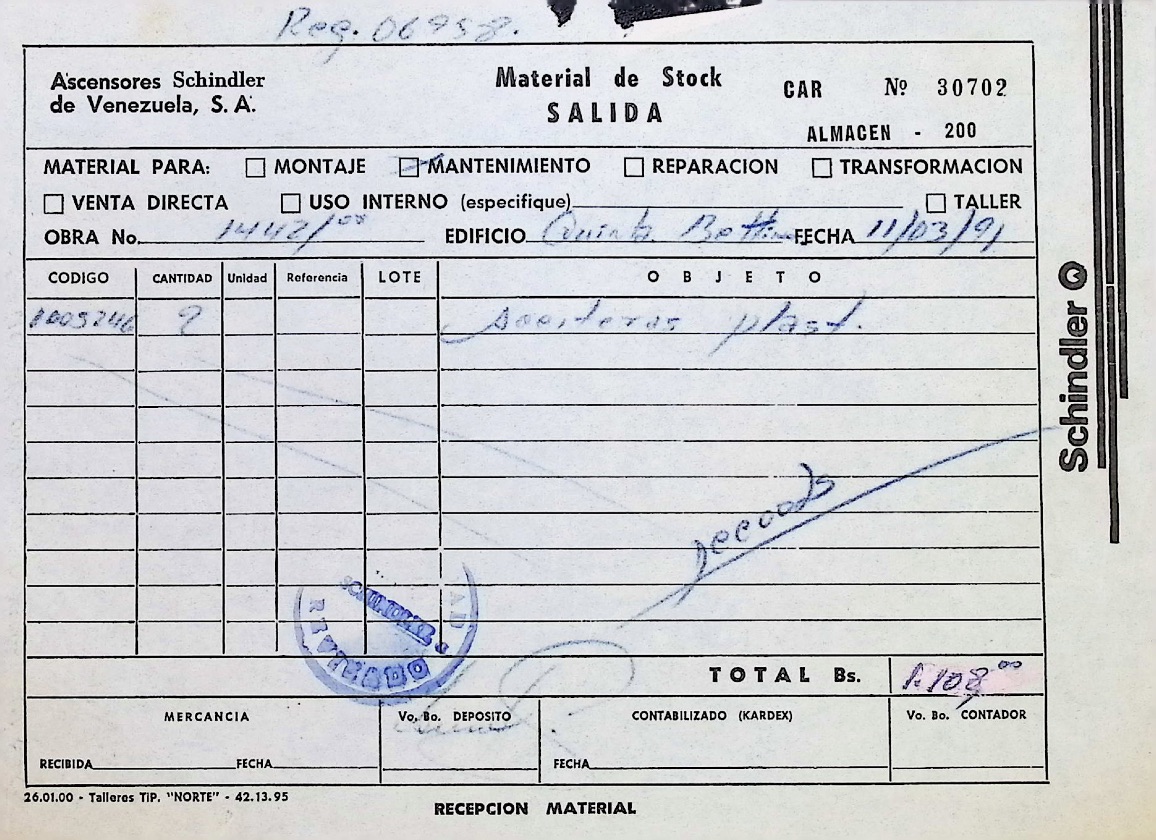 Reg. 06958.
Ascensores Schindler
de Venezuela, S. A.
Material de Stock
SALIDA
CAR Nº 30702
ALMACEN - 200
MATERIAL PARA: MONTAJE MANTENIMIENTO REPARACION TRANSFORMACION
VENTA DIRECTA USO INTERNO (especifique) TALLER
OBRA No. 1442/00 EDIFICIO Quinta FECHA 11/03/91
CODIGO CANTIDAD Unidad Referencia LOTE OBJETO
1005246 2 Aceiteras plast.
Schindler
SCHINDLER
TOTAL Bs. 1.108,00
MERCANCIA Vo. Bo. DEPOSITO CONTABILIZADO (KARDEX) Vo. Bo. CONTADOR
RECIBIDA FECHA FECHA
26.01.00 - Talleres TIP. "NORTE" - 42.13.95
RECEPCION MATERIAL